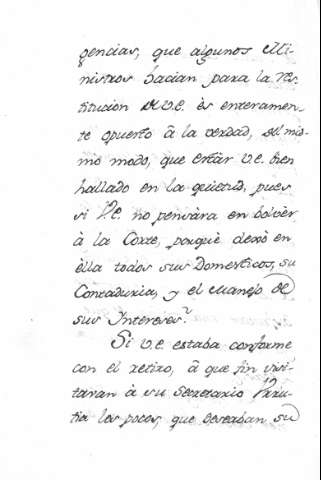 gencias, que algunos Mi-
nistros hacian para la res-
titucion de V.E. ès enteramen-
te opuesto â la verdad, del mis-
mo modo, que estàr V.E. bien
hallado en la quietud, pues
si V.E. no pensàra en bolvèr
à la Corte, porquè dexò en
èlla todos sus Domesticos, su
Contaduria, y el Manejo de
sus Intereses?
Si V.E. estaba conforme
con el retiro, â que fin visi-
taran à su Secretario
los pocos, que deseaban su